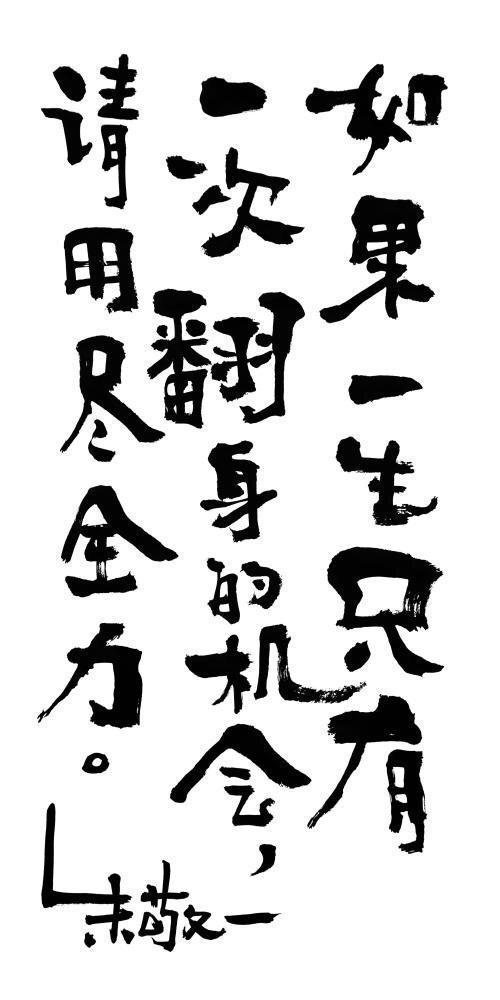 如果一生只有
一次翻身的机会，
请用尽全力。
朱敬一